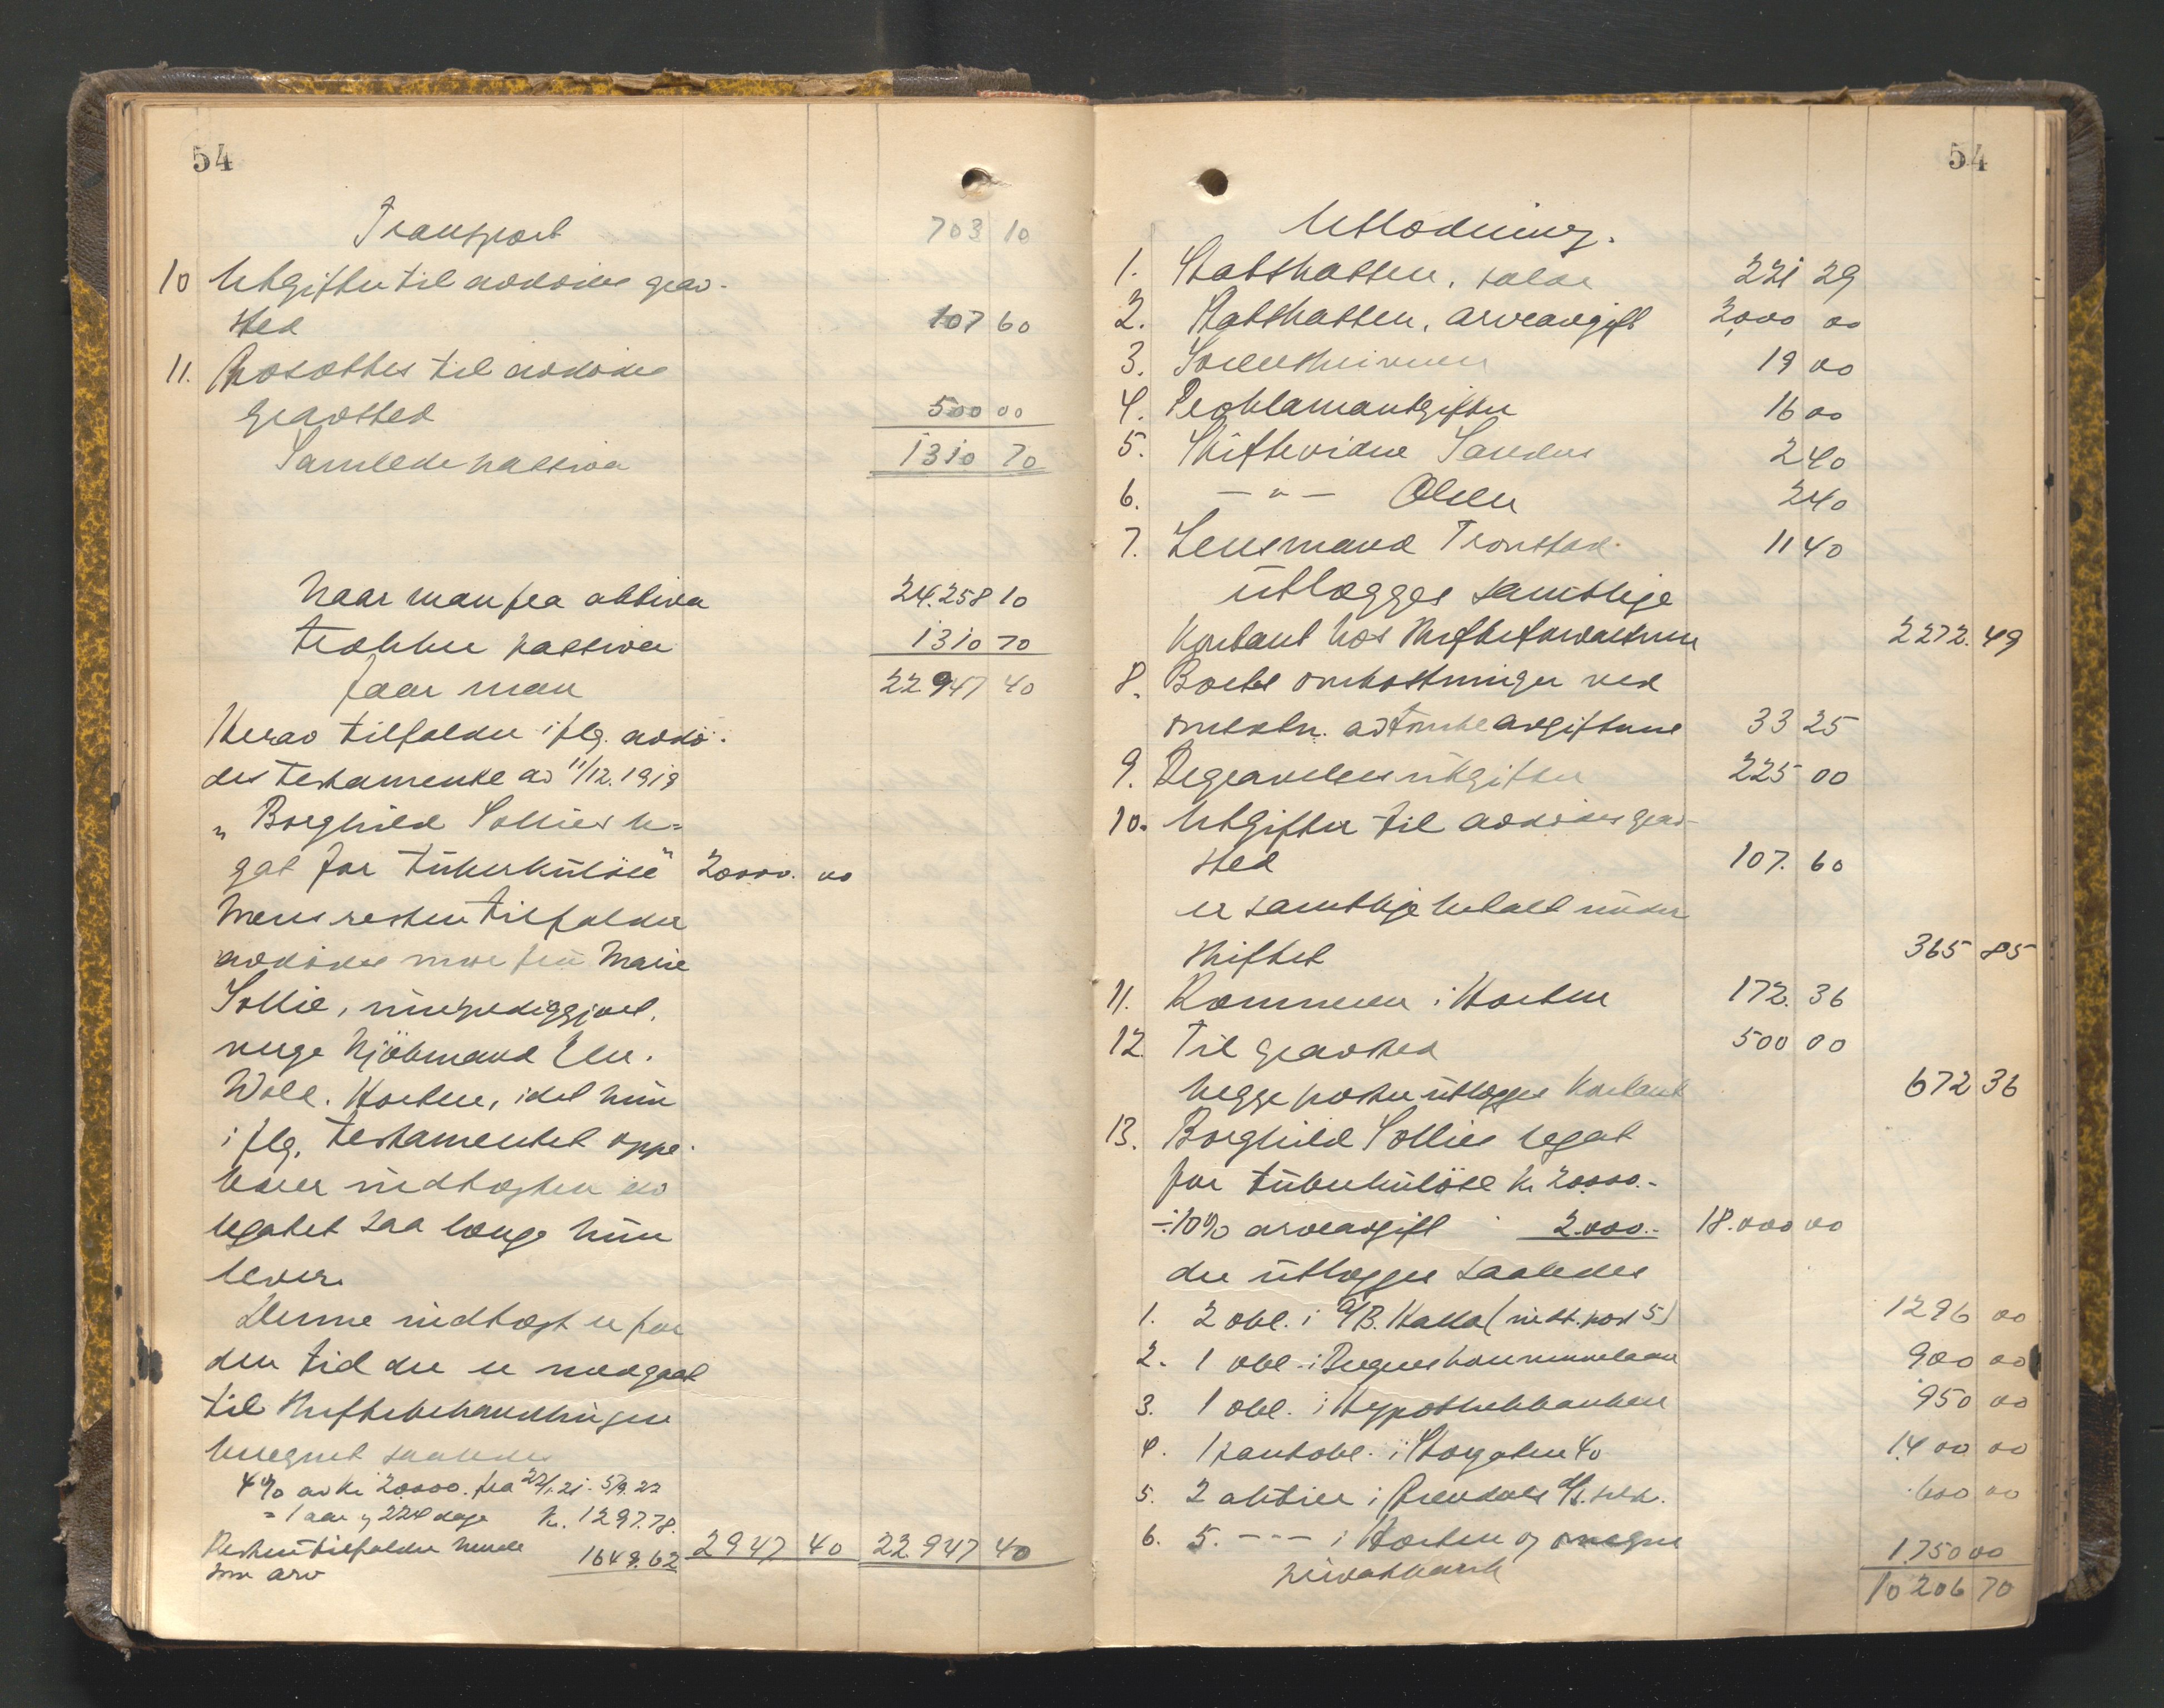 54
Transport 703 10
10 Utgifter til avdødes grav-
sted 107 60
11. Avsættes til avdødes
gravsted 500 00
Samlede passiva 1310 70
Naar man fra aktiva 24.258 10
trækker passiva 1310 70
faar man 22947 40
Herav tilfalder ifølg. avdø-
des testamente av 11/12.1919
„Borghild Sollies le-
gat for tuberkuløse" 20000. 00
Mens resten tilfalder
avdødes mor fru Marie
Sollie, umyndiggjort,
verge kjøbmand
Woll. Horten, idet hun
iflg. testamentet oppe-
bærer indtægten av
legatet saa længe hun
lever.
Denne indtægt er for
den tid der er medgaat
til skiftebehandlingen
beregnet saaledes
4% av kr 20000. fra 22/1.21 - 5/9.22
= 1 aar og 224 dage kr. 1297.78.
Resten tilfalder hende 1649.62 2947 40 22.947 40
som arv
54
Utlodning.
1. Statskassen, salær 221 29
2. Statskassen, arveavgift 2000 00
3. Sorenskriveren 19 00
4. Proklamautgifter 16 00
5. Skiftevidne Sander 2 40
6. -"- Olsen 2 40
7. Lensmand Tronstad 11 40
utlægges samtlige
kontant hos skifteforvalteren 2272. 49
8. Boets omkostninger ved
omsætn. av tombeavgiftene 33 25
9. Begravelsesutgifter 225 00
10. Utgifter til avdødes grav-
sted 107. 60
er samtlige betalt under
skiftet 365 85
11. Kæmneren i Horten 172. 36
12. Til gravsted 500 00
begge poster utlægges kontant 672 36
13. Borghild Sollies legat
for tuberkuløse kr 20000.-
÷10% arveavgift 2.000.- 18.000 00
der utlægges saaledes
1. 2 obl. i A/B. Kakka (indt. post 5) 1296 00
2. 1 obl. i Bergens kommunelaan 900 00
3. 1 obl. i Hypotekbanken 950 00
4. 1 pantobl. i Storgaten 40 1400 00
5. 2 aktier i A/S. 600 00
6. 5. -"- i Horten og omegns
privatbank 1.750 00
10 206 70